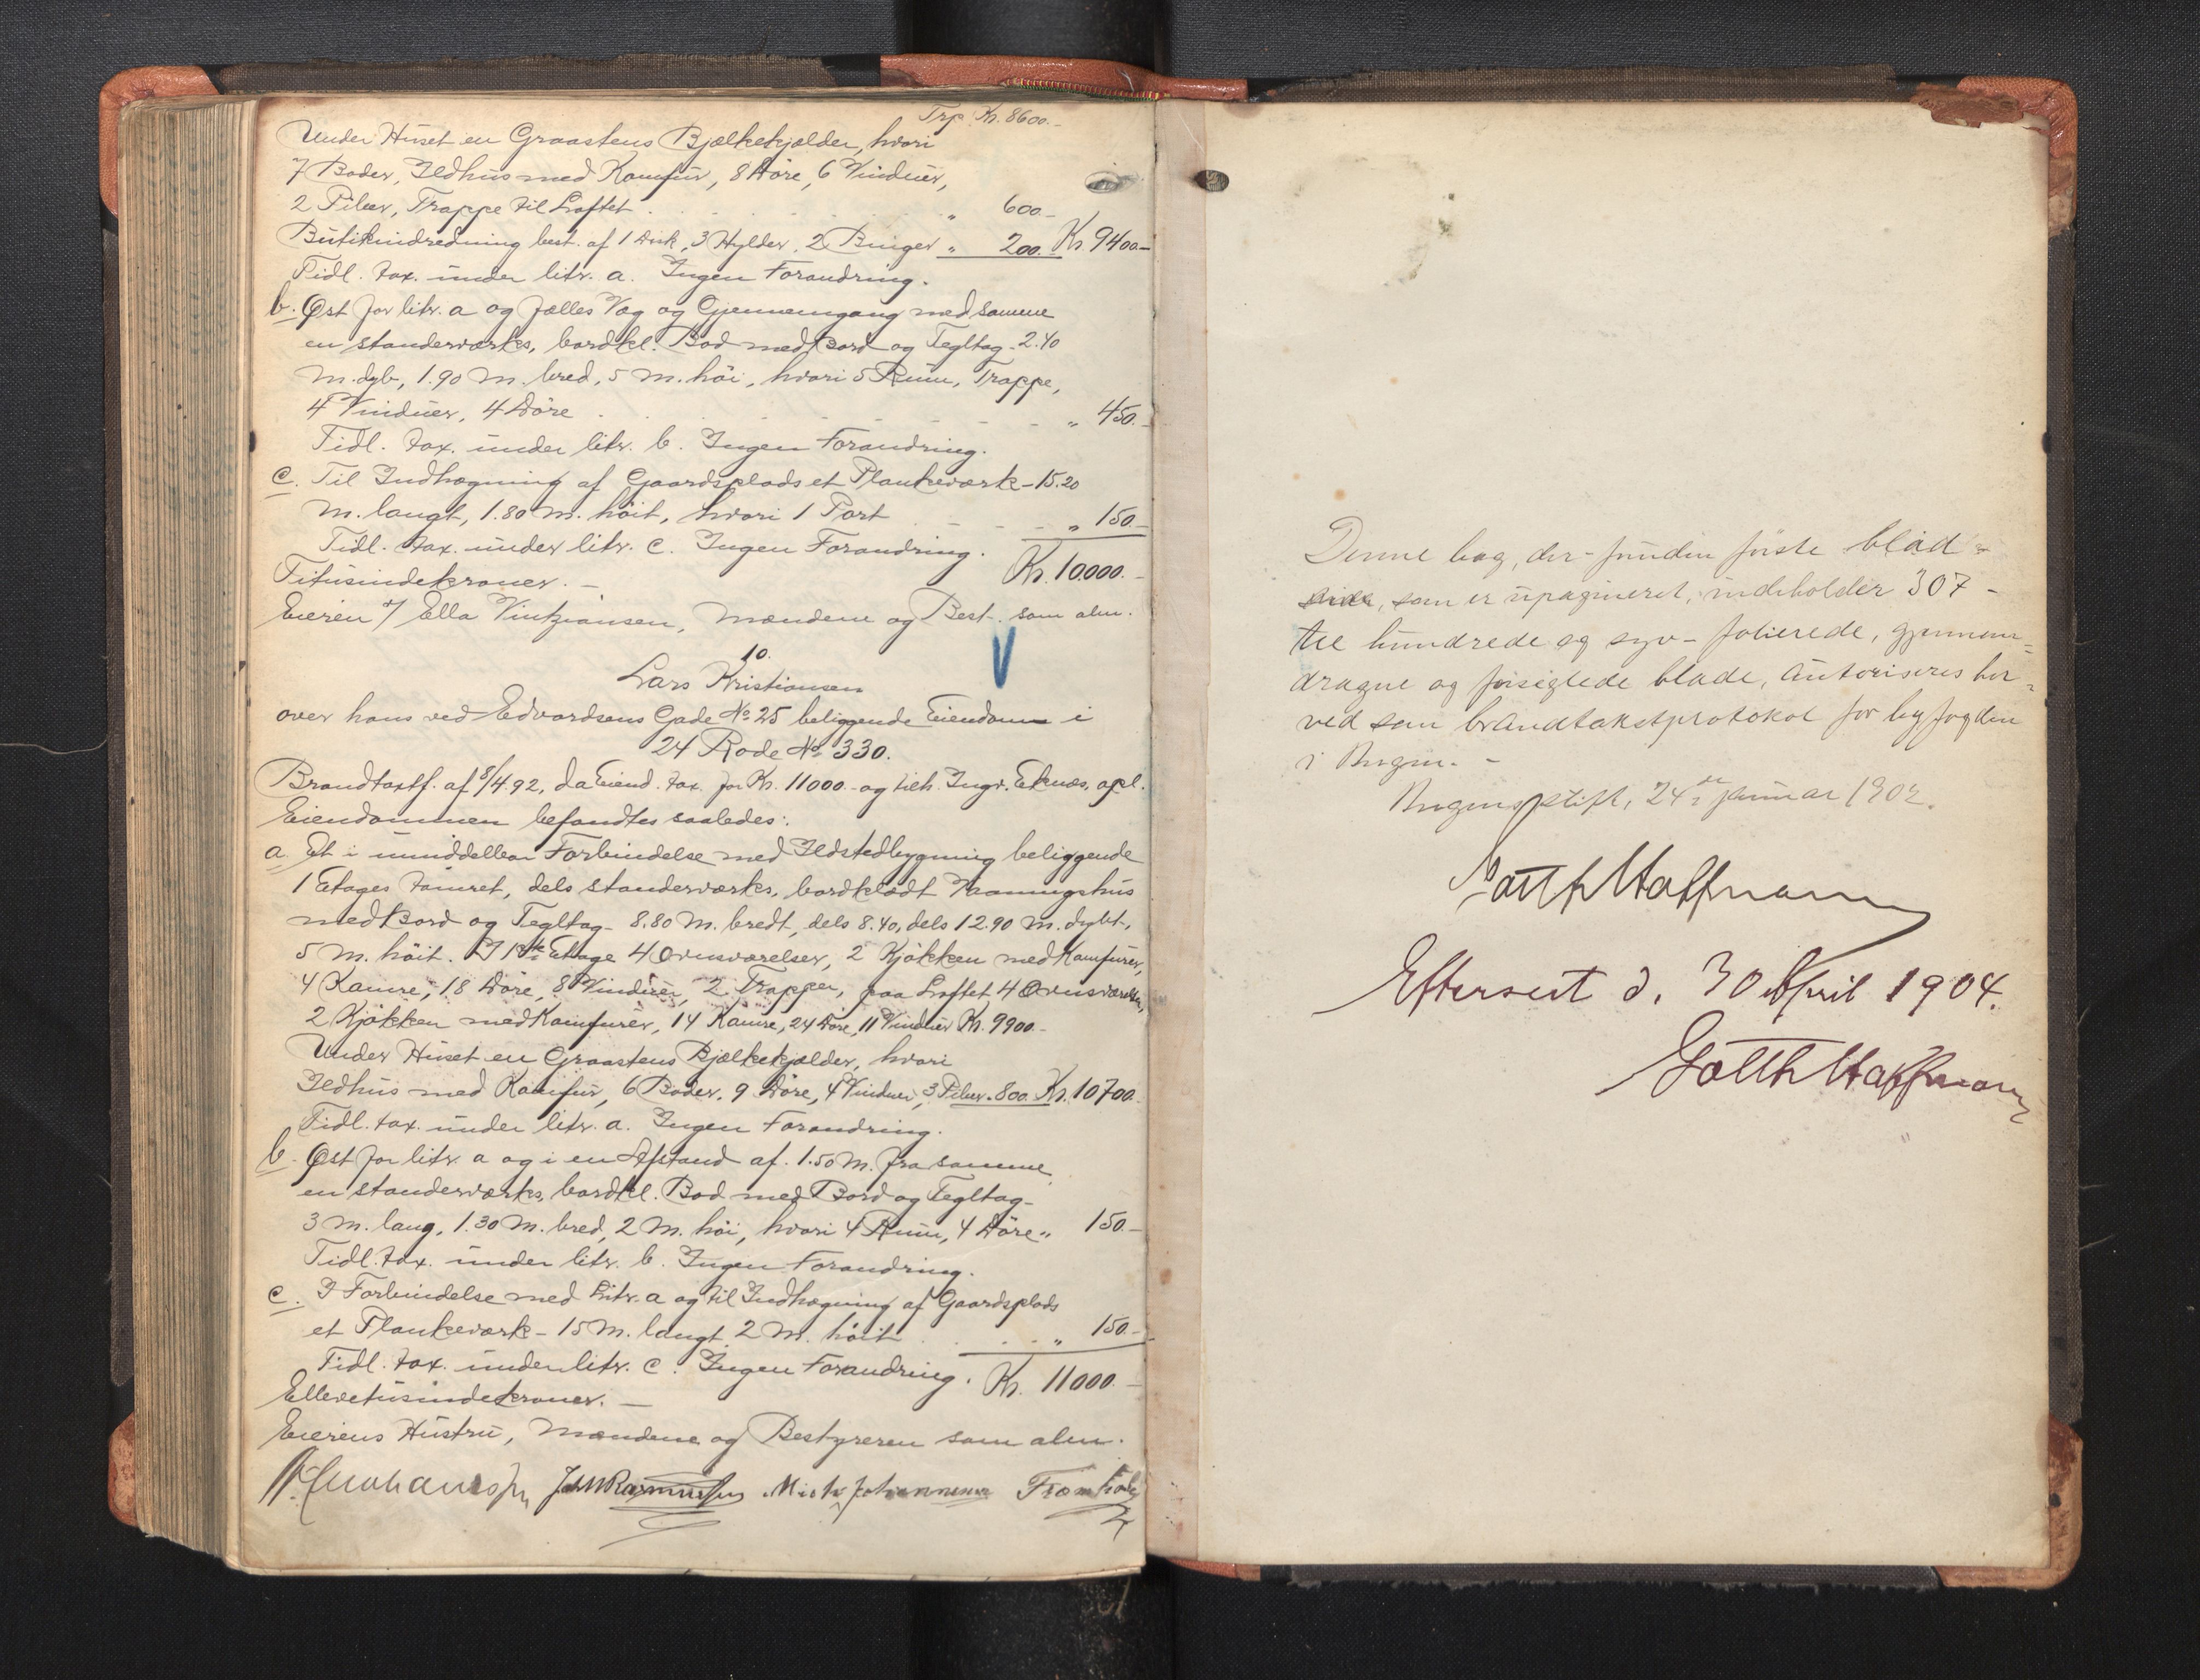 Trp. Kr. 8600.-
Under Huset en Graastens Bjælkekjælder, hvori
7 Boder, Ildhus med Komfur, 8 Döre, 6 Vinduer,
2 Piber, Trappe til Loftet . . . . . „ 600.-
Butikindredning best. af 1 Disk, 3 Hylder, 2 Binger „ 200. Kr 9400.-
Tidl. tax. under litr. a. Ingen Forandring.
b. Øst for litr. a og fælles Væg og Gjennemgang med samme
en standerværks, bordkl. Bod med Bord og Tegltag - 2.40
M. dyb, 1.90 M. bred, 5 M. höi, hvori 5 Rum, Trappe,
4 Vinduer, 4 Döre . . . . „ 450.-
Tidl. tax. under litr. b. Ingen Forandring.
c. Til Indhegning af Gaardsplads et Plankeværk - 15.20
M. langt, 1.80 M. höit, hvori 1 Port - - - „ 150.-
Tidl. tax. under litr. c. Ingen Forandring.
Titusindekroner. - Kr. 10.000.-
Eieren v/ Ella Vintziansen, Mændene og Best. som alm.
10.
Lars Kristiansen
over hans ved Edvardsens Gade No 25 beliggende Eiendom i
24 Rode No 330.
Brandtaxtf. af 8/4 92, da Eiend. tax. for Kr. 11000.- og tilh. Ingv. Eknæs, opl.
Eiendommen befandtes saaledes:
a. Et i umiddelbar Forbindelse med Ildstedbygning beliggende
1 Etages tömret, dels standerværks, bordklædt Vaaningshus
med Bord og Tegltag - 8.80 M. bredt, dels 8.40, dels 12.90 M. dybt,
5 M. höit. I 1ste Etage 4 Ovnsværelser, 2 Kjökken med Komfurer,
4 Kamre, 18 Döre, 8 Vinduer, 2 Trapper, paa Loftet 4 Ovnsværelser,
2 Kjökken med Komfurer, 14 Kamre, 24 Döre, 11 Vinduer Kr. 9900.-
Under Huset en Graastens Bjælkekjælder, hvori
Ildhus med Komfur, 6 Boder, 9 Döre, 4 Vinduer, 3 Piber „ 800. Kr. 10700.
Tidl. tax. under litr. a. Ingen Forandring.
b. Øst for litr. a og i en Afstand af 1.50 M. fra samme
en standerværks, bordkl. Bod med Bord og Tegltag -
3 M. lang, 1.30 M. bred, 2 M. höi, hvori 4 Rum, 4 Döre „ 150.-
Tidl. tax. under litr. b. Ingen Forandring.
c. I Forbindelse med Litr. a og til Indhegning af Gaardsplads
et Plankeværk - 15 M. langt 2 M. höit . . . „ 150.-
Tidl. tax. under litr. c. Ingen Forandring.
Ellevetusindekroner. - Kr. 11000.-
Eierens Hustru, Mændene og Bestyreren som alm.
Joh M Rasmussen Johannesen
Denne bog, der - foruden første blad-
side, som er upagineret, indeholder 307 -
tre hundrede og syv - folierede, gjennem=
dragne og forseglede blade, autoriseres her=
ved som brandtakstprotokol for byfogden
i Bergen. -
Bergens stift, 24de januar 1902.
Gotth Hoffmann
Efterseet d. 30 April 1904.
Gotth Hoffmann